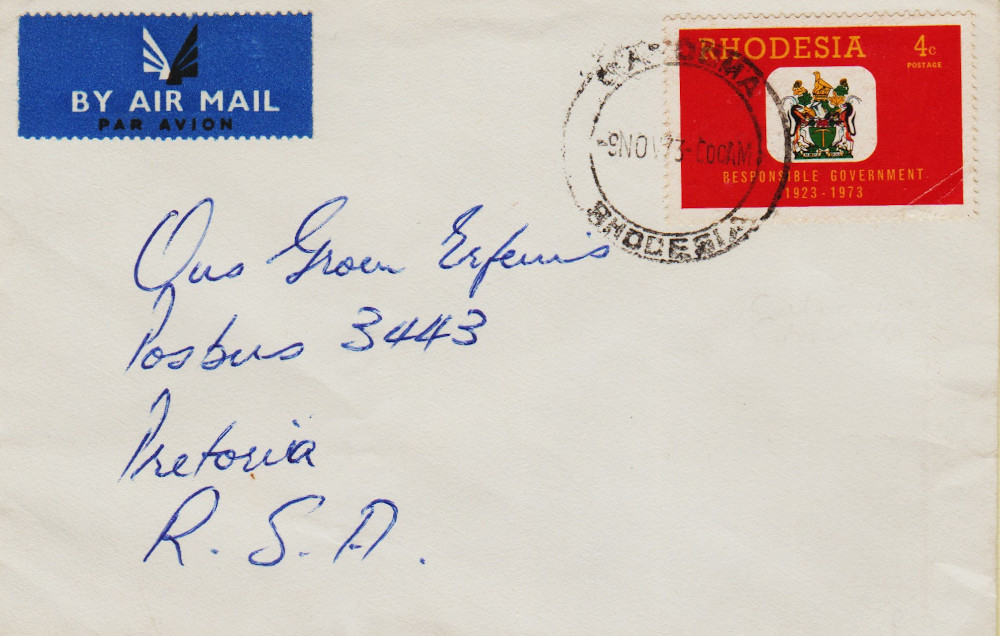 BY AIR MAIL
PAR AVION
RHODESIA 4c
POSTAGE
RESPONSIBLE GOVERNMENT
1923 - 1973
-9NOV73-600AM
RHODESIA
Ons Groen Erfenis
Posbus 3443
Pretoria
R. S. A.